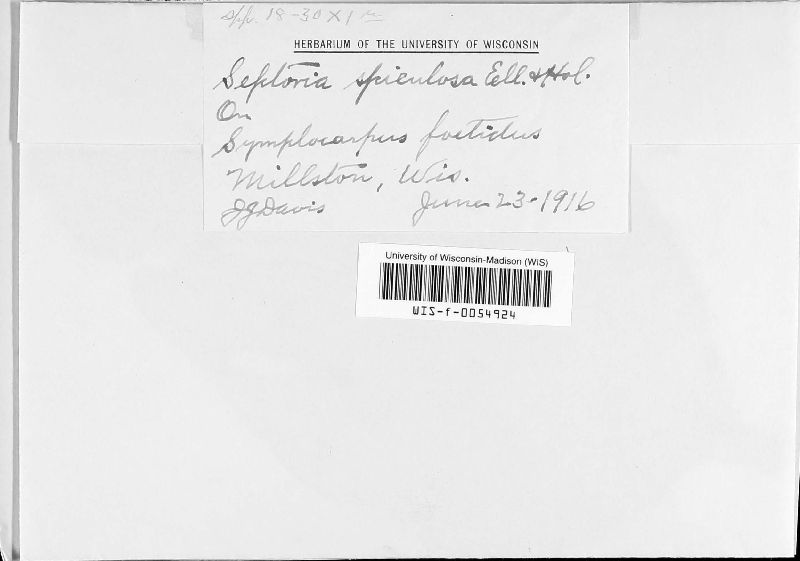 spp. 18-30 X 1 µ
HERBARIUM OF THE UNIVERSITY OF WISCONSIN
Septoria spiculosa Ell. & Hol.
On
Symplocarpus foetidus
Millston, Wis.
JJDavis June 23-1916
University of Wisconsin-Madison (WIS)
WIS-f-0054924